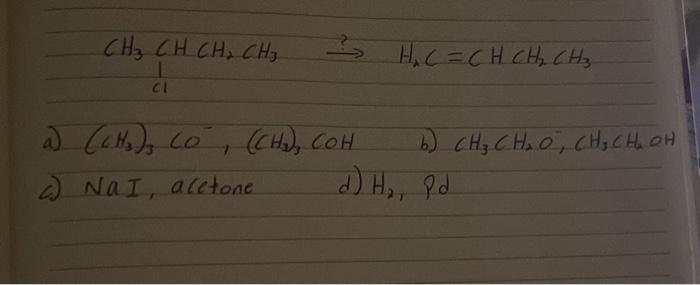 CH₃ CH CH₂ CH₃ →? H₂C = CH CH₂ CH₃
|
Cl
a) (CH₃)₃ CO⁻, (CH₃)₃ COH b) CH₃CH₂O⁻, CH₃CH₂OH
c) NaI, acetone d) H₂, Pd